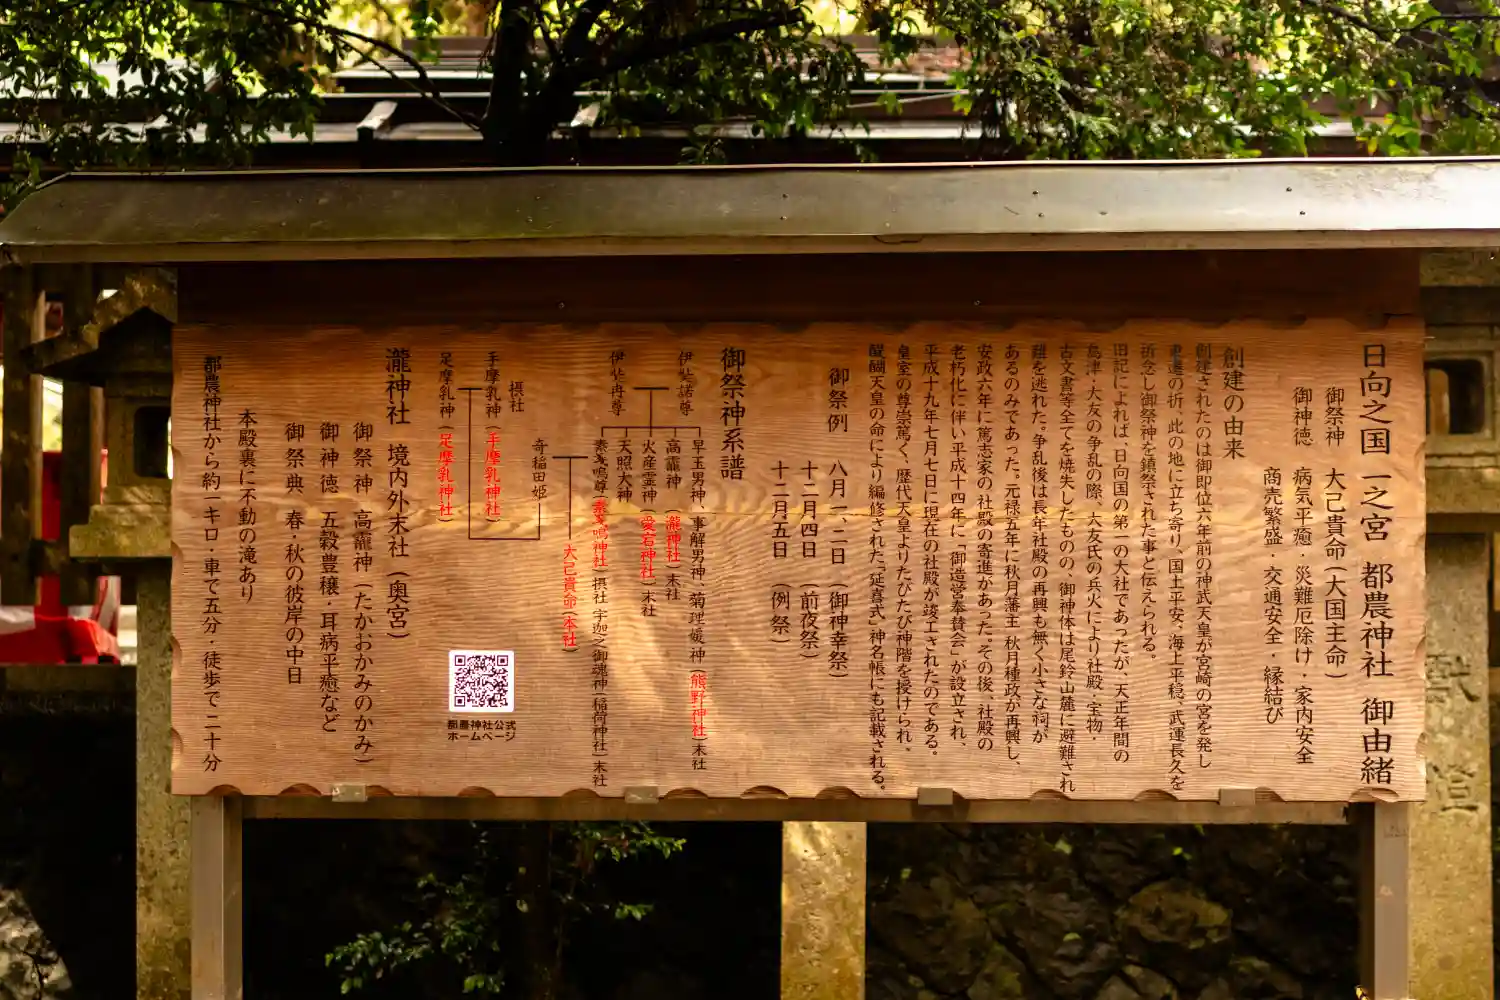 日向之国 一之宮 都農神社 御由緒
御祭神 大己貴命(大国主命)
御神徳 病気平癒・災難厄除け・家内安全
商売繁盛・交通安全・縁結び
創建の由来
創建されたのは御即位六年前の神武天皇が宮崎の宮を発し
東遷の折、此の地に立ち寄り、国土平安、海上平穏、武運長久を
祈念し御祭神を鎮祭された事と伝えられる。
旧記によれば、日向国の第一の大社であったが、天正年間の
島津・大友の争乱の際、大友氏の兵火により社殿・宝物・
古文書等全てを焼失したものの、御神体は尾鈴山麓に避難され
難を逃れた。争乱後は長年社殿の再興も無く小さな祠が
あるのみであった。元禄五年に秋月藩主 秋月種政が再興し、
安政六年に篤志家の社殿の寄進があった。その後、社殿の
老朽化に伴い平成十四年に「御造営奉賛会」が設立され、
平成十九年七月七日に現在の社殿が竣工されたのである。
皇室の尊崇篤く、歴代天皇よりたびたび神階を授けられ、
醍醐天皇の命により編修された「延喜式」神名帳にも記載される。
御祭例 八月一、二日 (御神幸祭)
十二月四日 (前夜祭)
十二月五日 (例祭)
御祭神系譜
伊弉諾尊
伊弉冉尊
早玉男神、事解男神、菊理媛神(熊野神社)末社
高龗神 (瀧神社)末社
火産霊神(愛宕神社)末社
天照大神
素戔嗚尊(素戔嗚神社)摂社 宇迦之御魂神(稲荷神社)末社
大己貴命(本社)
奇稲田姫
摂社
手摩乳神(手摩乳神社)
足摩乳神(足摩乳神社)
都農神社公式
ホームページ
瀧神社 境内外末社(奥宮)
御祭神 高龗神(たかおかみのかみ)
御神徳 五穀豊穣・耳病平癒など
御祭典 春・秋の彼岸の中日
本殿裏に不動の滝あり
都農神社から約一キロ・車で五分・徒歩で二十分